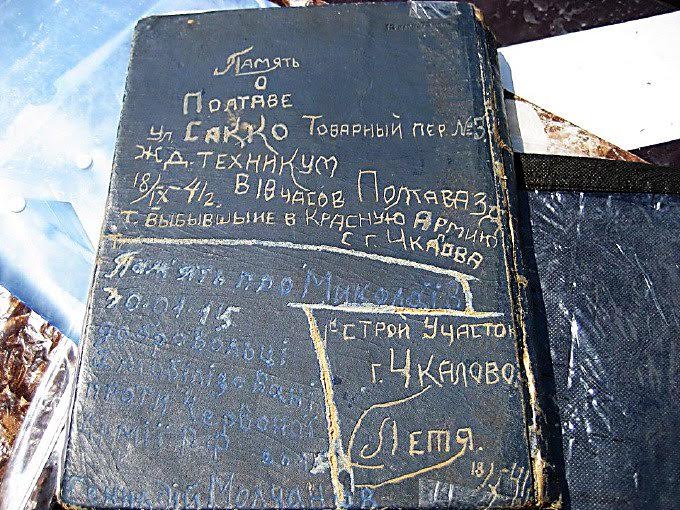 Память
о
Полтаве
ул. Сакко Товарный пер. №3
Ж.Д. Техникум
18/IX-41г. в 18 часов Полтава
т. выбывшыие в Красную Армию
с г. Чкалова
Пам'ять про Миколаїв
30.01.15
добровольці
мобілізовані
проти Червоної
Армії
Строй Участок
г. Чкалово
Летя.
18/IX-41
Геннадій Молчанов